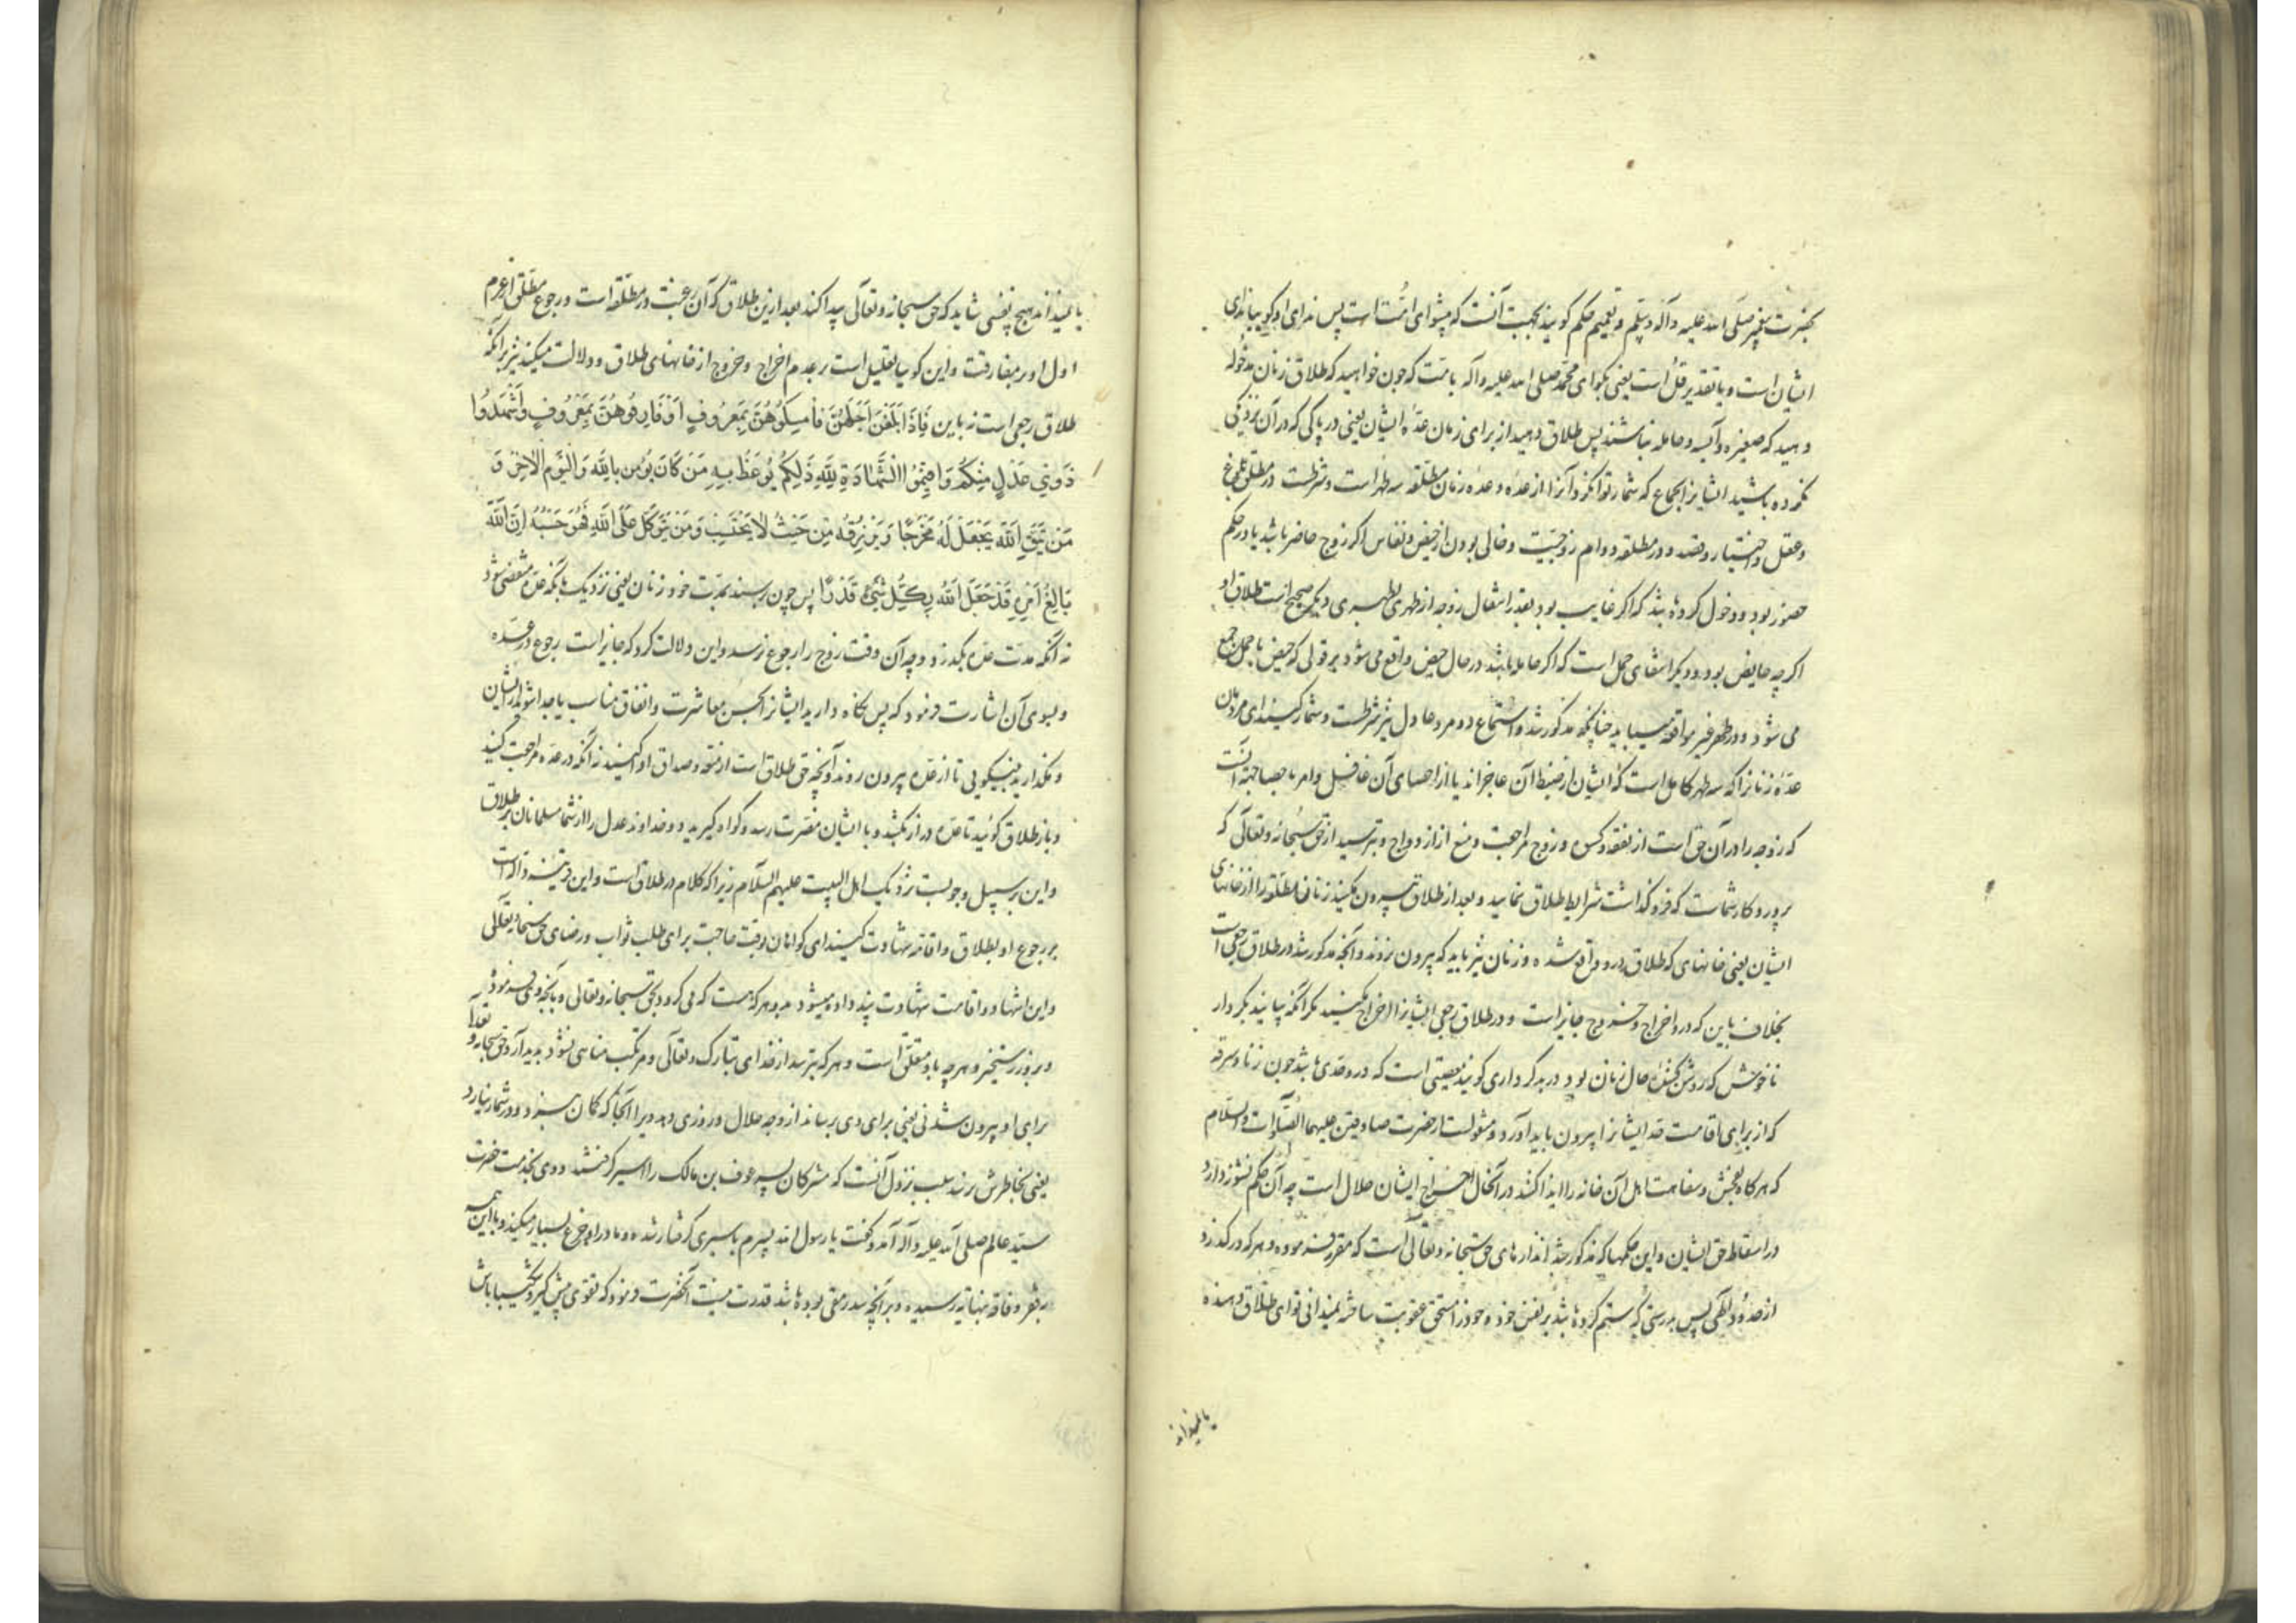 بحضرت پیغمبر صلی الله علیه وآله وسلم و تعمیم حکم گویند بجهت آنست که پیشوای امت است پس ندای او گویا ندای
ایشان است و یا بتقدیر قل است یعنی بگو ای محمد صلی الله علیه وآله بامت که چون خواهید که طلاق زنان مدخوله
دهید که صغیره و آیسه و حامله نباشند پس طلاق دهید از برای زمان عده ایشان یعنی در پاکی که در آن نزدیکی
نکرده باشید ایشانرا بجماع که شمار توانکرد آنرا از عده و عده زنان مطلقه سه طهر است و شرطست در مطلق بلوغ
وعقل و اختیار و قصد و در مطلقه دوام زوجیت و خالی بودن از حیض و نفاس اگر زوج حاضر باشد یا در حکم
حضور بود و دخول کرده باشد که اگر غایب بود بقدر انتقال زوجه از طهری بطهری دیگر صحیح است طلاق او
اگرچه حایض بود و دیگر انتفای حمل است که اگر حامله باشد در حال حیض واقع می شود بر قولی که حیض با حمل جمع
می شود و در طهر غیر مواقعه میباید چنانچه مذکور شد و استماع دو مرد عادل نیز شرطست و شمار کنید ای مردان
عده زنانرا که سه طهر کامل است که ایشان از ضبط آن عاجزاند یا از احصای آن غافل و امر باحصا جهة آنست
که زوجه را در آن حق است از نفقه و کسوه و زوج مراجعت و منع از ازدواج و بترسید از حق سبحانه وتعالی که
پروردکار شماست که فرو گذاشت شرایط طلاق نمایید و بعد از طلاق بیرون مکنید زنان مطلقه را از خانهای
ایشان یعنی خانهای که طلاق درو واقع شده و زنان نیز باید که بیرون نروند و آنچه مذکور شد در طلاق رجعی است
بخلاف باین که درو اخراج و خروج جایز است و در طلاق رجعی ایشانرا اخراج مکنید مگر آنکه بیایند بکردار
ناخوش که روشن کننده حال زنان بود در بد کرداری گویند معصیتی است که درو حدی باشد چون زنا و سرقه
که از برای اقامت حد ایشانرا بیرون باید آورد و منقولست از حضرت صادقین علیهما الصلوات والسلام
که هرگاه بفحش و سفاهت اهل آن خانه را ایذا کنند در آنحال اخراج ایشان حلال است چه آن حکم نشوز دارد
در اسقاط حق ایشان و این حکمها که مذکور شد اندازهای حق سبحانه وتعالی است که مقرر فرموده و هر که درگذرد
از حدود الهی پس بدرستی که ستم کرده باشد بر نفس خود و خود را مستحق عقوبت ساخته نمیدانی تو ای طلاق دهنده
یا نمیداند
یا نمیداند هیچ نفسی شاید که حق سبحانه وتعالی پیدا کند بعد ازین طلاق که آن رغبت در مطلقه است و رجوع مطلق از عزم
اول او بر مفارقت و این گویا تعلیل است بر عدم اخراج و خروج از خانهای طلاق و دلالت میکند نیز بر آنکه
طلاق رجعی است نه باین فَإِذَا بَلَغْنَ أَجَلَهُنَّ فَأَمْسِكُوهُنَّ بِمَعْرُوفٍ أَوْ فَارِقُوهُنَّ بِمَعْرُوفٍ وَأَشْهِدُوا
ذَوَيْ عَدْلٍ مِنْكُمْ وَأَقِيمُوا الشَّهَادَةَ لِلَّهِ ذَلِكُمْ يُوعَظُ بِهِ مَنْ كَانَ يُؤْمِنُ بِاللَّهِ وَالْيَوْمِ الْآخِرِ وَ
مَنْ يَتَّقِ اللَّهَ يَجْعَلْ لَهُ مَخْرَجًا وَيَرْزُقْهُ مِنْ حَيْثُ لَا يَحْتَسِبُ وَمَنْ يَتَوَكَّلْ عَلَى اللَّهِ فَهُوَ حَسْبُهُ إِنَّ اللَّهَ
بَالِغُ أَمْرِهِ قَدْ جَعَلَ اللَّهُ لِكُلِّ شَيْءٍ قَدْرًا پس چون برسند بمدت خود زنان یعنی نزدیک بآنکه عده منقضی شود
نه آنکه مدت عده بگذرد و چه آن وقت زوج را رجوع نرسد و این دلالت کرد که جایز است رجوع در عده
و بسوی آن اشارت فرمود که پس نگاه دارید ایشانرا بحسن معاشرت و انفاق مناسب یا جدا شوید از ایشان
و بگذارید بنیکویی تا از عده بیرون روند و آنچه حق طلاق است از متعه و صداق ادا کنید نه آنکه در عده مراجعت کنید
و باز طلاق گوئید تا عده دراز بکشد و با ایشان مضرت رسد و گواه گیرید دو خداوند عدل را از شما مسلمانان بر طلاق
و این بر سبیل وجوبست نزدیک اهل البیت علیهم السلام زیرا که کلام در طلاق است و این قرینه داله است
بر رجوع او بطلاق و اقامه شهادت کنید ای گواهان بوقت حاجت برای طلب ثواب و رضای حق سبحانه وتعالی
و این اشهاد و اقامت شهادت پند داده میشود بدو هر که هست که می گرود بحق سبحانه وتعالی و بآنچه وی فرموده
و بروز رستخیز و هرچه باو متعلق است و هر که بترسد از خدای تبارک وتعالی و مرتکب مناهی نشود پدید آرد حق سبحانه وتعالی
برای او بیرون شدنی یعنی برای وی برساند از وجه حلال و روزی دهد ویرا از آنجا که گمان نبرد و در شمار نیارد
یعنی بخاطرش نرسد سبب نزول آنست که مشرکان پسر عوف بن مالک را اسیر گرفتند و وی بخدمت حضرت
سید عالم صلی الله علیه وآله آمد و گفت یا رسول الله پسرم باسیری گرفتار شده و مادر او جزع بسیار میکند و با این همه
فقر و فاقه بنهایت رسیده و بر آنچه سد رمقی بوده باشد قدرت نیست آنحضرت فرمود که تقوی پیش گیر و شکیبا باش